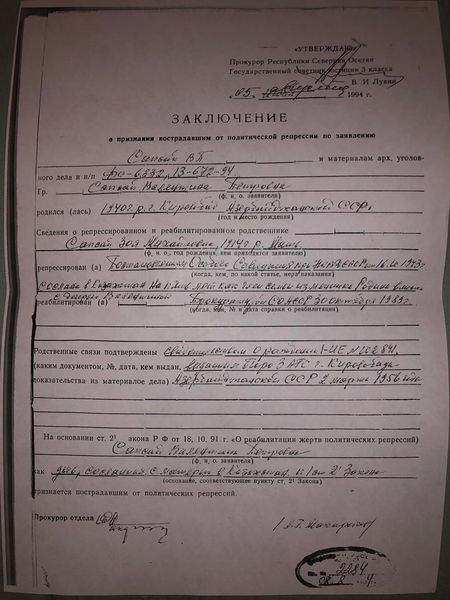 «УТВЕРЖДАЮ»
Прокурор Республики Северная Осетия
Государственный советник юстиции 3 класса
В. И Лукин
1994 г.
ЗАКЛЮЧЕНИЕ
о признании пострадавшим от политической репрессии по заявлению
Сапсай ВП и материалам арх. уголов-
ного дела и н/п 13-672-94
Гр. Сапсай Валентина Петровна
(ф, и о. заявителя)
родился (лась) 1940 г. р. г. Кировабад Азербайджанской ССР,
(год и место рождения)
Сведения о репрессированном и реабилитированном родственнике
Сапсай Зоя Михайловна, 1914 г р. Мать
(ф. и. о., год рождения, кем приходится заявителю)
репрессирован (а) Постановлением Особого Совещания при НКВД СССР от 1943 г
(когда, кем, по какой статье, мера наказания)
сослана в Казахстан на лет как член семьи изменника Родине вместе
с дочерью Валентиной
реабилитирован (а) Прокуратурой СОАССР 30 октября 1989 г.
(когда, кем, № и дата справки о реабилитации)
Родственные связи подтверждены свидетельством о рождении I-ИЕ №
(каким документом, №, дата, кем выдан, Бюро ЗАГС г. Кировабада
показательства из материалов дела) Азербайджанской ССР 2 марта 1956 года
На основании ст. 2¹ акона РФ от 18. 10. 91 г. «О реабилитации жертв политических репрессий)
Сапсай Валентина Петровна
(ф, и. о. заявителя)
как дочь, сосланная с матерью в Казахстан. ст 2¹ Закона
(основание, соответствующее пункту ст, 2¹ Закона)
признается пострадавшим от политических репрессий.
Прокурор отдела
2284